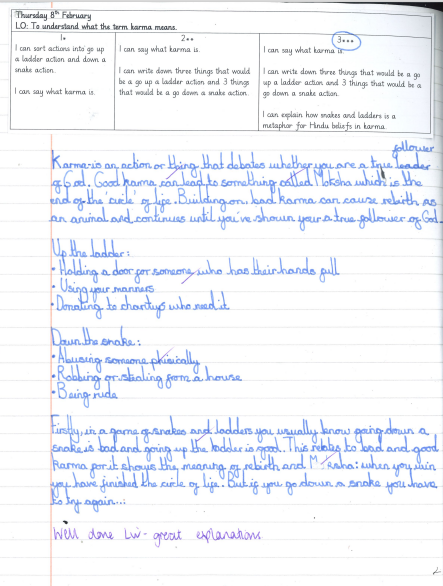 Thursday 8th February
LO: To understand what the term karma means.
1*
I can sort actions into go up a ladder action and down a snake action.
I can say what karma is.
2**
I can say what karma is.
I can write down three things that would be a go up ladder action and 3 things that would be a go down a snake action.
3***
I can say what karma is.
I can write down three things that would be a go up a ladder action and 3 things that would be a go down a snake action.
I can explain how snakes and ladders is a metaphor for Hindu beliefs in karma
follower
Karma is an action or thing that debates whether you are a true leader
of God. Good karma can lead to something called Moksha which is the
end of the circle of life. Building on, bad karma can cause rebirth as
an animal and continues until you've shown your a true follower of God.
Up the ladder:
• Holding a door for someone who has their hands full
• Using your manners
• Donating to charitys who need it
Down the snake:
• Abusing someone phisically
• Robbing or stealing from a house
• Being rude
Firstly, in a game of snakes and ladders you usually know going down a
snake is bad and going up the ladder is good. This relates to bad and good
karma for it shows the meaning of rebirth and Moksha: when you win
you have finished the circle of life. But if you go down a snake you have
to try again...
Well done Liv - great explanations